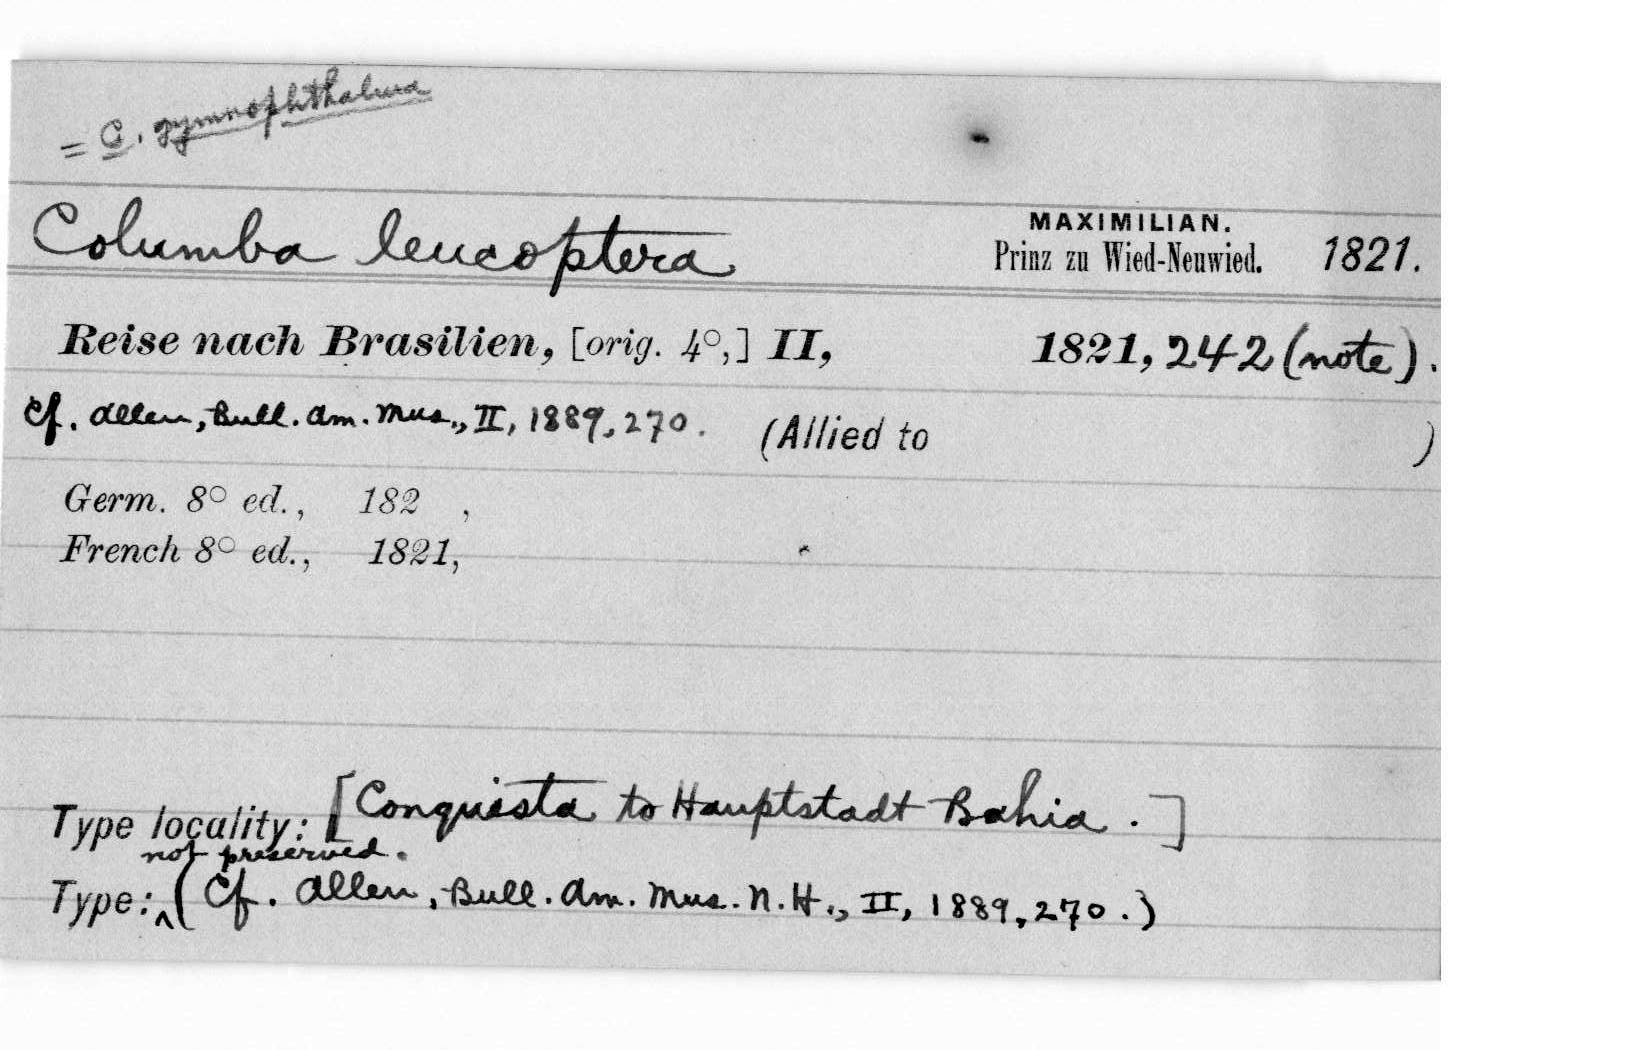 = C. gymnophthalma
Columba leucoptera MAXIMILIAN. Prinz zu Wied-Neuwied. 1821.
Reise nach Brasilien, [orig. 4°,] II, 1821, 242 (note).
Cf. Allen, Bull. Am. Mus., II, 1889, 270. (Allied to )
Germ. 8° ed., 182 ,
French 8° ed., 1821,
Type locality: [Conquista to Hauptstadt Bahia.]
not preserved.
Type: ^ (Cf. Allen, Bull. Am. Mus. N. H., II, 1889, 270.)